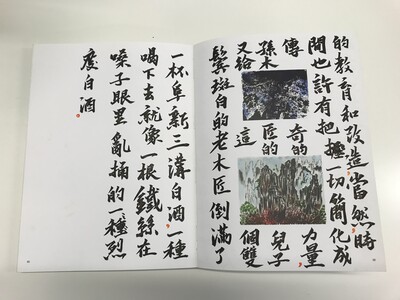 的教育和改造,當然,時
間也許有把一切簡化成
傳奇的力量,
孫木匠的兒子
又給這個雙
鬢斑白的老木匠倒滿了
一杯阜新三溝白酒,一種
喝下去就像一根鐵絲在
嗓子眼里亂捅的一種烈
度白酒。